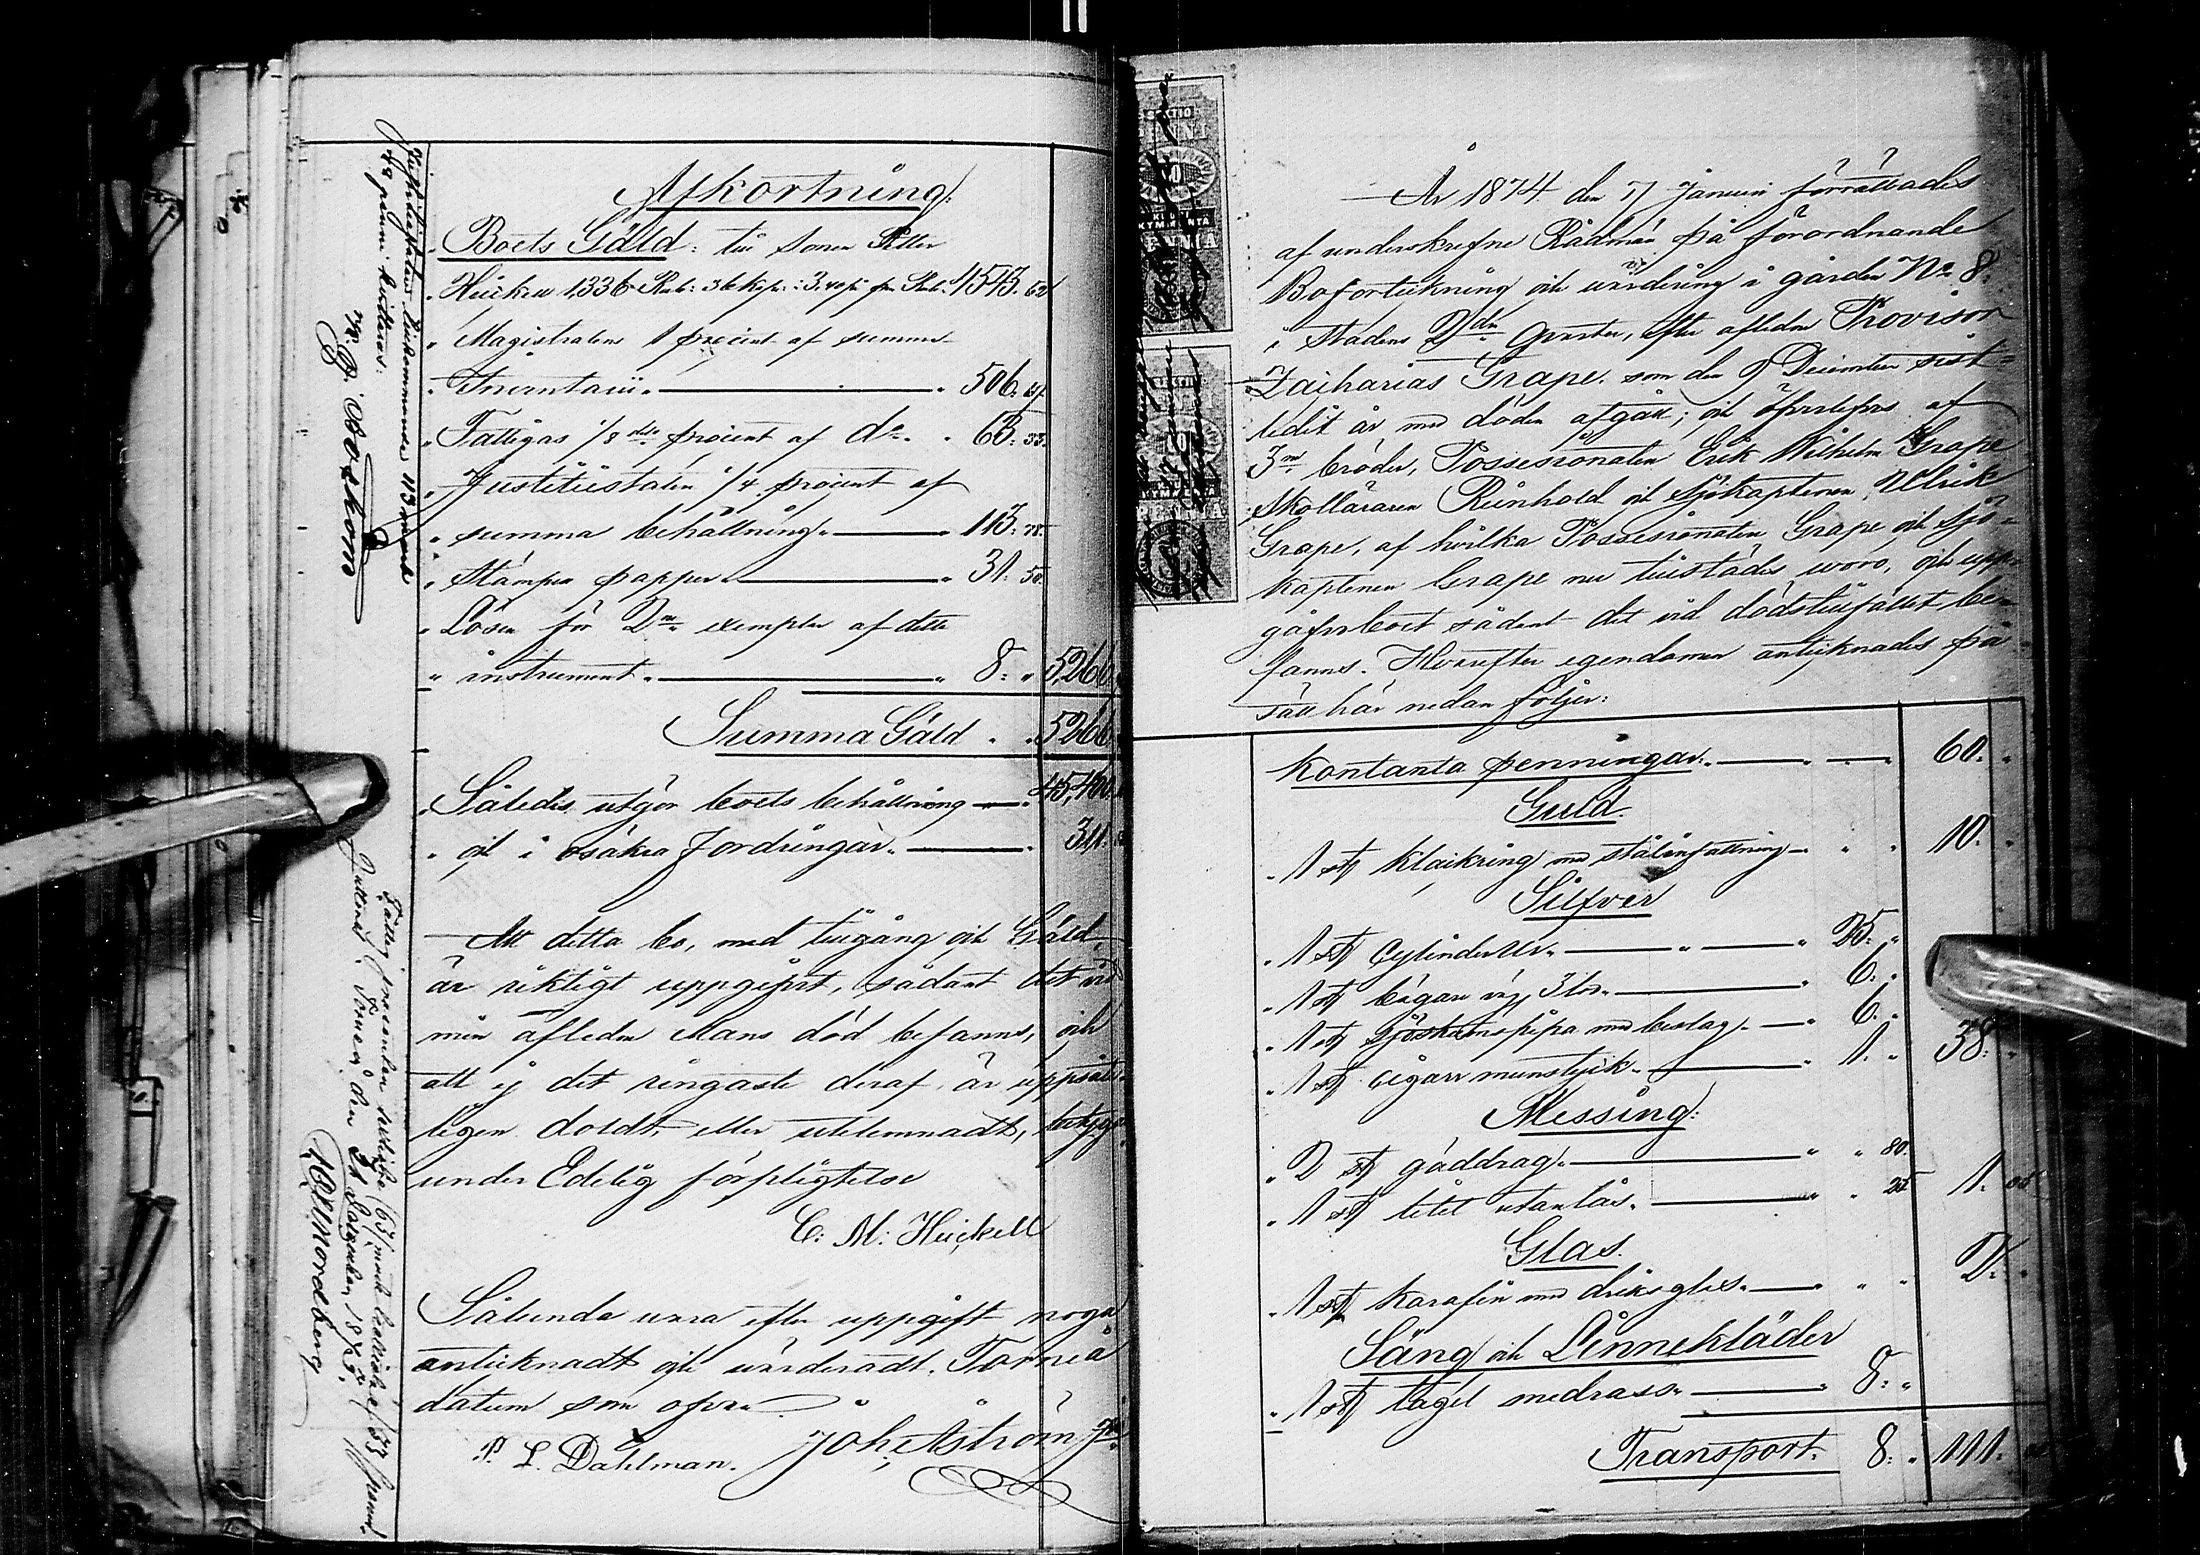 Afkortning:
Boets Gäld: till Sonen Petter
Heickell 1,336 Rub: 36 Kop: 3.40 pi pr Rub. 4543. 62
Magistratens 1 procent af summa
Inventarii. 506. 64
Fattigas 1/8 dels procent af do. 63: 33.
Justitiistatens 1/4 procent af
summa behållning. 113: 78.
Stämpen papper. 31: 50.
Lösen för 2ne exemplar af detta
instrument. 8: " 5,266:
Summa Gäld 5266
Således utgör boets behållning 45,400
och i osäkra fordringar. 311.
Att detta bo, med tillgång och Gäld,
är riktigt uppgifvet, sådant det vid
min aflidne Mans död befanns, och
att ej det ringaste deraf är uppsåt-
ligen doldt, eller utelemnadt, betygar
under Edelig förpligtelse
C: M: Heickell
Sålunda vara efter uppgift noga
antecknadt och värderadt. Torneå
datum som ofvan.
P. L. Dahlman. Joh. Åström
113 mark
78 penni qvitteras:
Boskom
Fattig procenten med 63 mark 33 penni
qvitteras, Torneå den 31 1875.
Nordberg
År 1874 den 7 Januari förrättades
af underskrefne Rådmän på förordnande
Boforteckning och värdering i gården No 8
i stadens 2dra Qvarter, efter aflidne Provisor
Zacharias Grape, som den 9 December sist-
ledit år med döden afgått; och efterlefves af
3ne bröder, Possessionaten Erik Wilhelm Grape
Skolläraren Reinhold och Sjökaptenen Ulrik
Grape, af hvilka Possessionaten Grape och Sjö-
kaptenen Grape nu tillstädes voro, och upp-
gåfvo boet sådant det vid dödstillfället be-
fanns. Hvarefter egendomen antecknades på
sätt här nedan följer:
Kontanta penningar. 60. "
Guld.
1 st klackring med stålinfattning 10. "
Silfver
1 st Cylinder Ur. 25: "
1 st bägare väg 3 lod. 6: "
1 st Sjöskumspipa med beslag. 6. "
1 st Cigarr munstyck. 1. " 38: "
Messing:
2 st gäddrag. " 80.
1 st litet utanlås. " 25 1. 05
Glas.
1 st karafin med dricksglas. 2: "
Säng och Linnekläder
1 st tagel madrass. 8: "
Transport. 8: " 111. 05